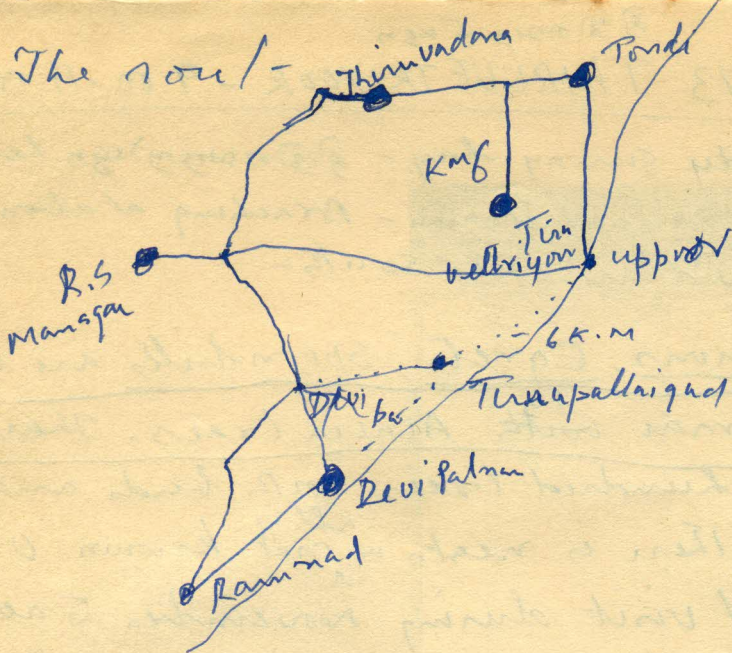 The rout-
Thiruvadana
Tondi
KM6
Tiru
Vellriyour
uppoor
R.S
Managau
6 K.M
Tirrupallaigud
Devi
Devi Patnam
Ramnad